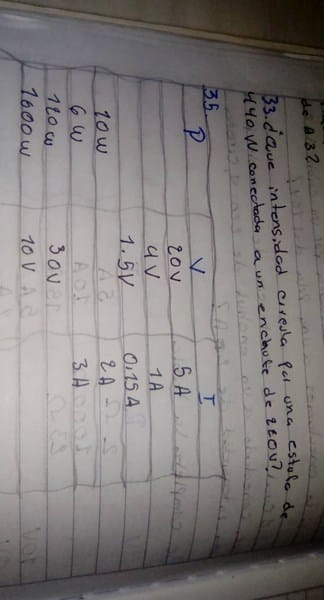 de A 3?
33. ¿que intensidad circula por una estufa de
440 W conectada a un enchufe de 220V?
35
P V I
20V 5A
4V 1A
1.5V 0.15A
10w 2A
6w 3A
120w 30V
1600w 10V